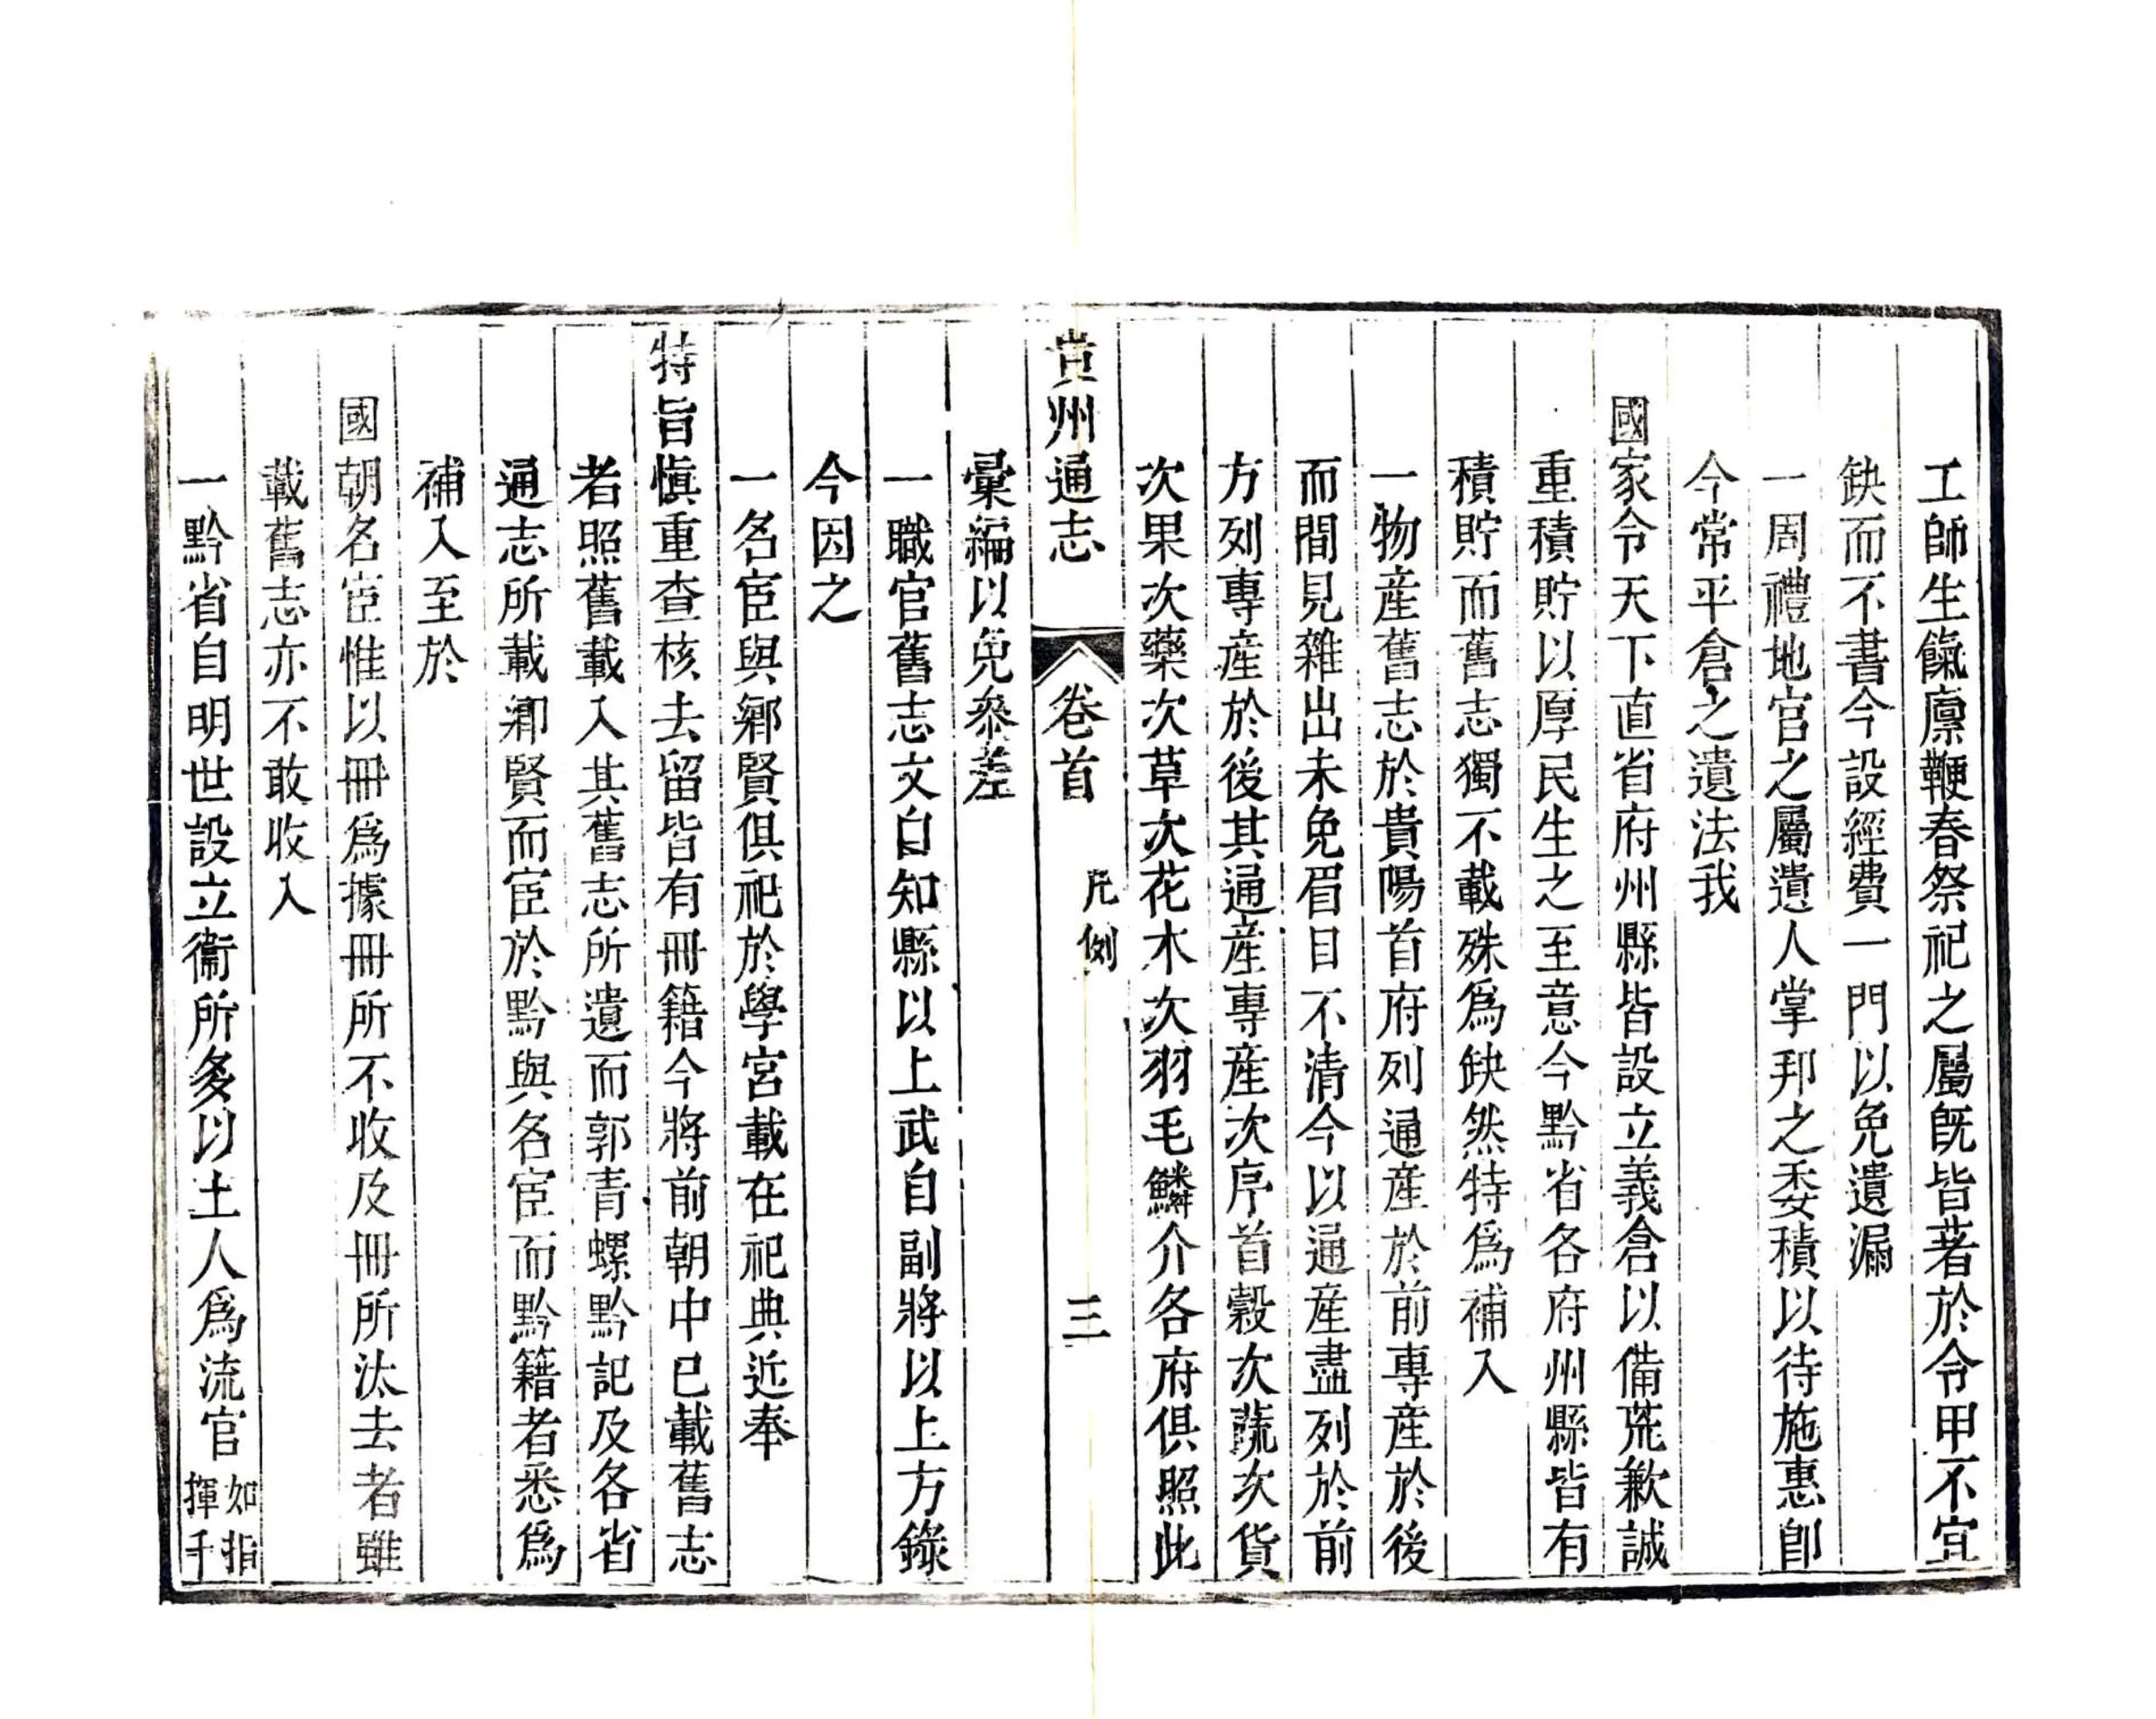 工師生餼廪鞭春祭祀之屬既皆著於令甲不宜
缺而不書今設經費一門以免遺漏
一周禮地官之屬遺人掌邦之委積以待施惠卽
今常平倉之遺法我
國家令天下直省府州縣皆設立義倉以備荒歉誠
重積貯以厚民生之至意今黔省各府州縣皆有
積貯而舊志獨不載殊爲缺然特爲補入
一物産舊志於貴陽首府列通産於前專産於後
而間見雜出未免眉目不清今以通産盡列於前
方列專産於後其通産專産次序首穀次蔬次貨
次果次藥次草次花木次羽毛鱗介各府俱照此
貴州通志
卷首
凡例
三
彙編以免叅差
一職官舊志文自知縣以上武自副將以上方錄
今因之
一名宦與鄉賢俱祀於學宮載在祀典近奉
特旨愼重查核去留皆有冊籍今將前朝中已載舊志
者照舊載入其舊志所遺而郭青螺黔記及各省
通志所載鄉賢而宦於黔與名宦而黔籍者悉爲
補入至於
國朝名宦惟以冊爲據冊所不收及冊所汰去者雖
載舊志亦不敢收入
一黔省自明世設立衞所多以土人爲流官
如指
揮千